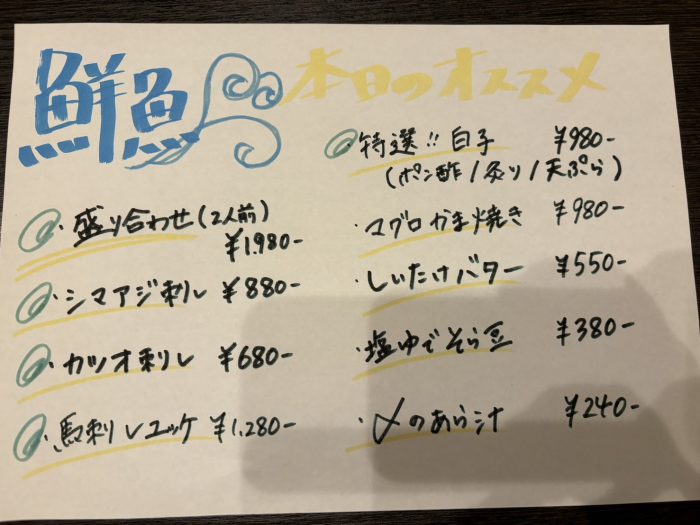 鮮魚
本日のオススメ
・盛り合わせ(2人前)
¥1.980-
・シマアジ刺し ¥880-
・カツオ刺し ¥680-
・馬刺しユッケ ¥1.280-
・特選!!白子 ¥980-
(ポン酢/炙り/天ぷら)
・マグロかま焼き ¥980-
・しいたけバター ¥550-
・塩ゆでそら豆 ¥380-
・〆のあら汁 ¥240-